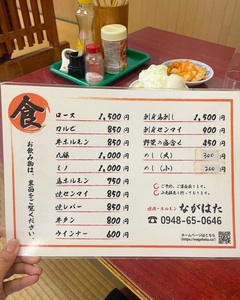 食
お飲み物は、裏面をご覧ください。
ロース 1,500円
カルビ 850円
牛ホルモン 850円
丸腸 1,000円
ミノ 1,000円
馬ホルモン 750円
焼センマイ 850円
焼レバー 850円
牛タン 800円
ウインナー 600円
刺身馬刺し 1,500円
刺身センマイ 900円
野菜の盛合せ 450円
めし(大) 300円
めし(小) 200円
ご予約、ご宴会承ります。
焼肉・ホルモン ながはた
☎ 0948-65-0646
ホームページはこちら